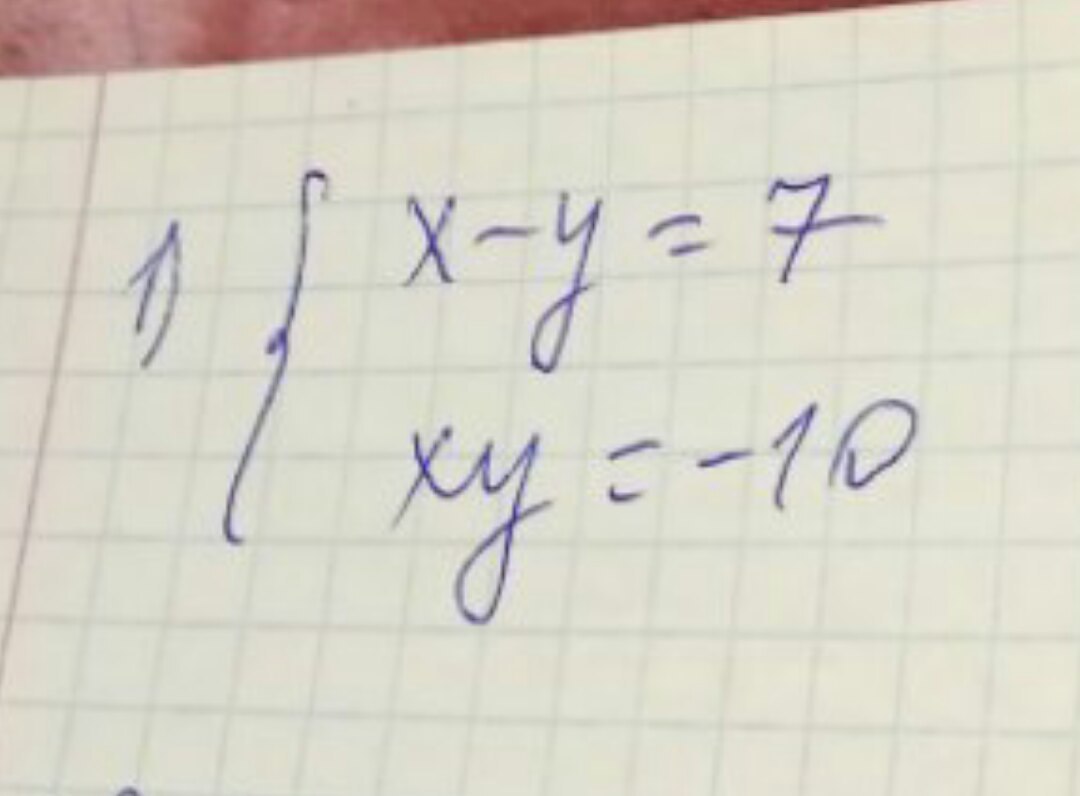 1) { x-y = 7
xy = -10